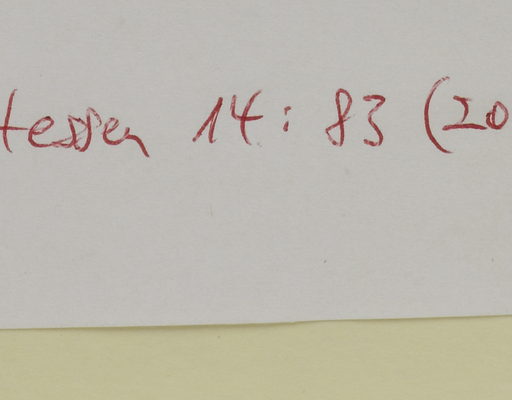 Hessen 14: 83 (20